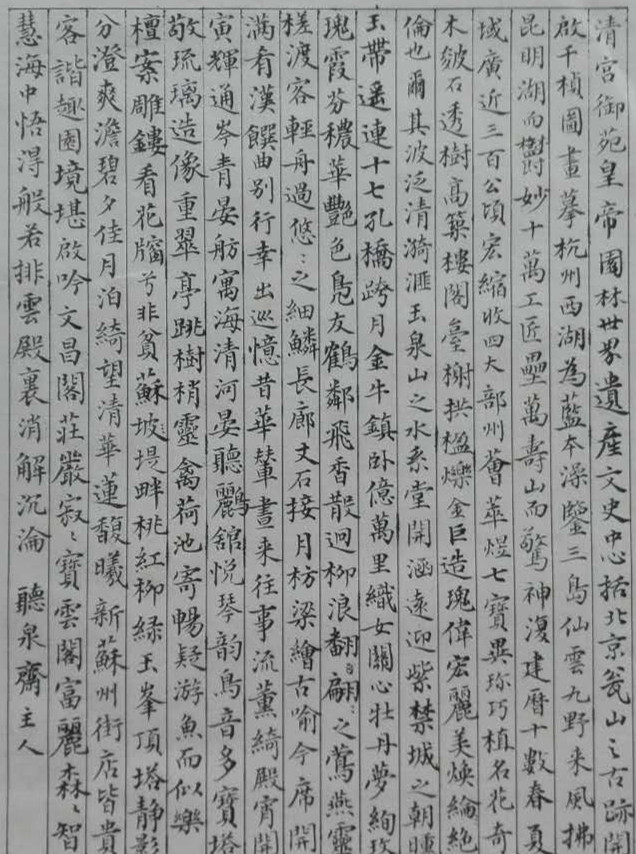 清宫御苑皇帝園林世界遺産文史中心括北京瓮山之古跡開
啟千楨圖畫摹杭州西湖為藍本深鑒三島仙雲九野来風拂
昆明湖而欝妙十萬工匠壘萬壽山而驚神復建曆十數春夏
域廣近三百公頃宏縮收四大部州薈萃煜七寶異珎巧植名花奇
木皴石透樹高築樓閣臺榭拱楹爍金巨造瑰偉宏麗美焕綸絶
倫也爾其波泛清漪滙玉泉山之水系堂開涵遠迎紫禁城之朝曈
玉帶遥連十七孔橋跨月金牛鎮卧億萬里織女關心牡丹夢絢玫
瑰霞芬穠華艷色凫友鶴鄰飛香散迴柳浪翻翩之鶯燕靈
槎渡客輕舟過悠之細鱗長廊丈石接月枋梁繪古喻今席開
滿肴漢饌曲别行幸出巡憶昔華輦晝来往事流薰綺殿宵開
寅輝通岑青晏舫寓海清河晏聽鸝舘悦琴韵鳥音多寶塔
敬琉璃造像重翠亭跳樹梢靈禽荷池寄暢疑游魚而似樂
檀案雕鏤看花牖兮非貧蘇坡堤畔桃紅柳緑玉峯頂塔静影
分澄爽澹碧夕佳月泊綺望清華蓮馥曦新蘇州街店皆貴
客諧趣園境堪啟吟文昌閣莊嚴寂寶雲閣富麗森智
慧海中悟得般若排雲殿裏消解沉淪 聽泉齋主人